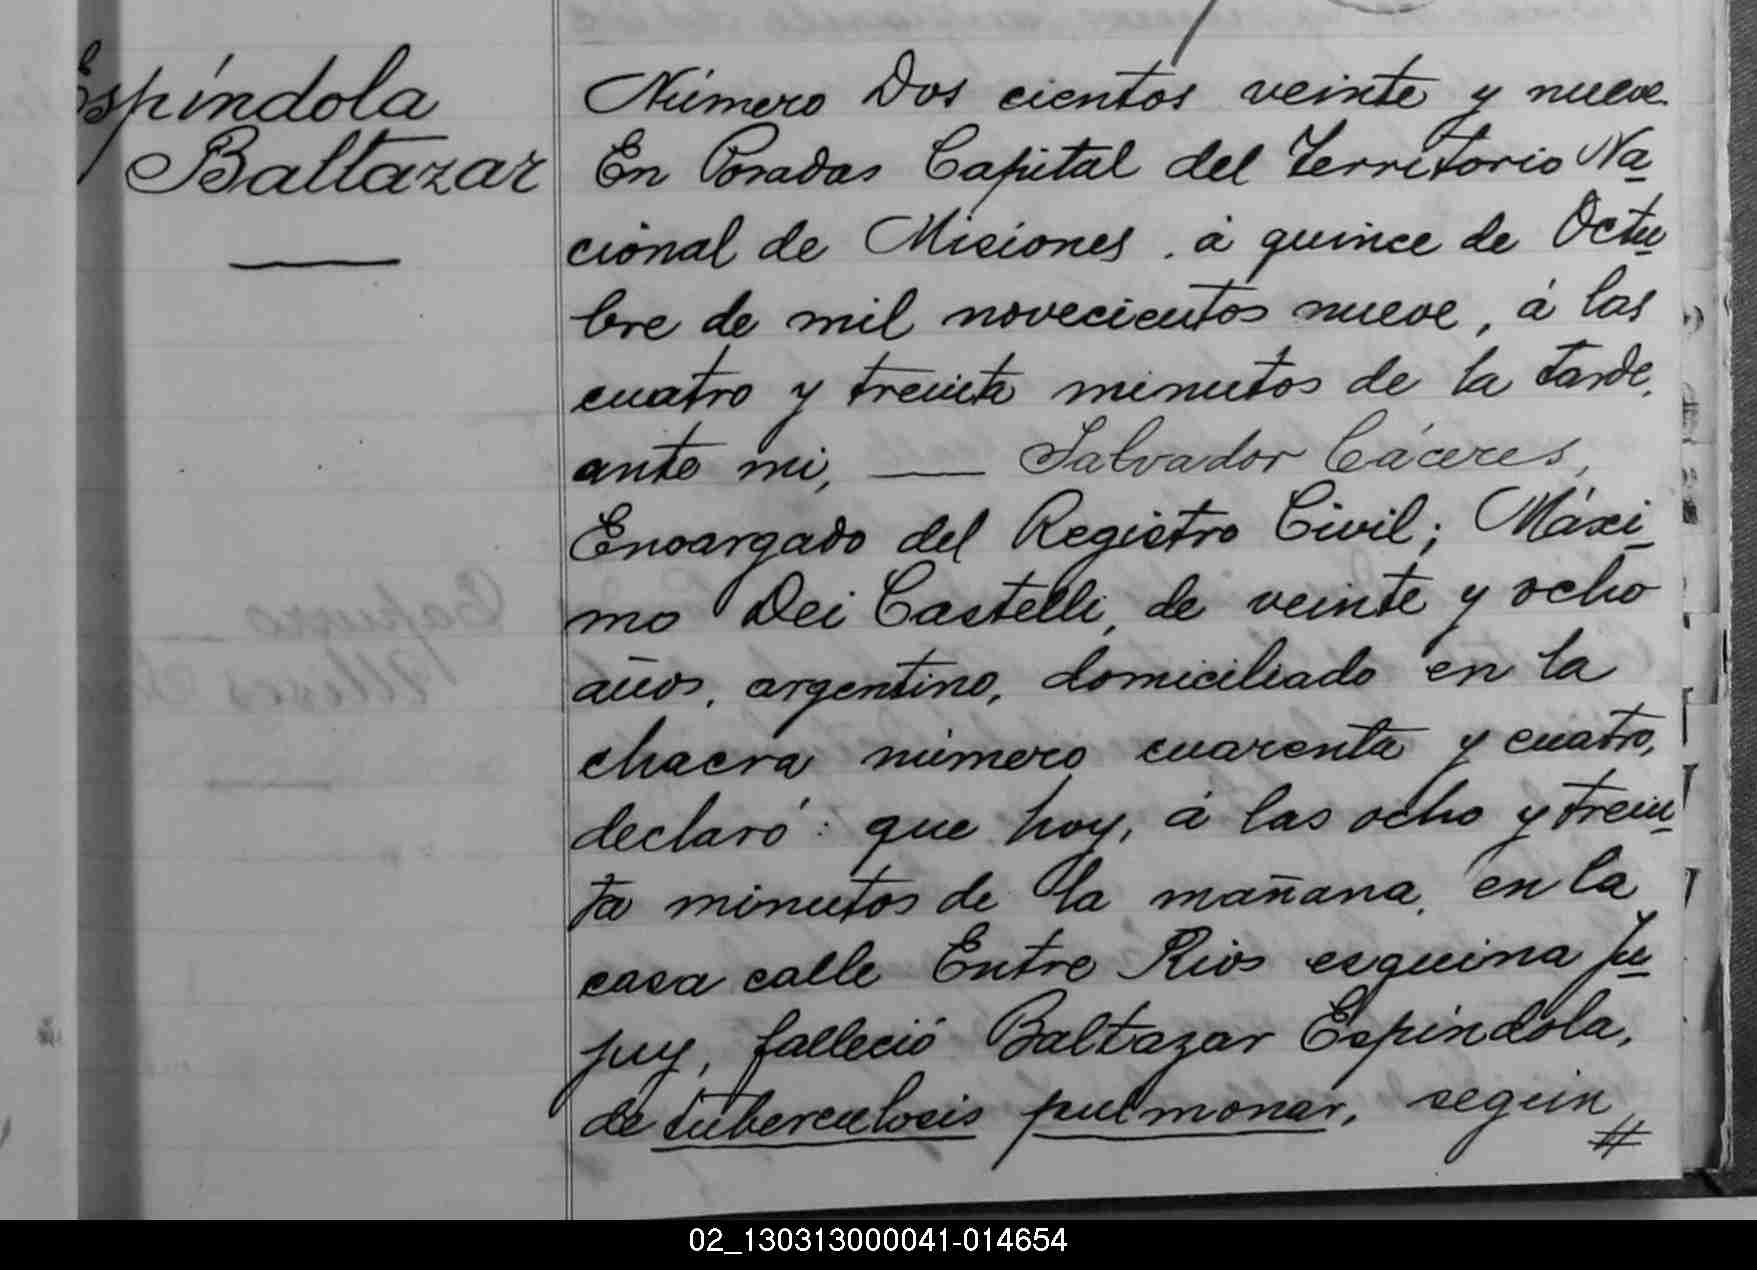 Espíndola
Baltazar
Número Dos cientos veinte y nueve
En Posadas Capital del Territorio Na
cional de Misiones, á quince de Octu
bre de mil novecientos nueve, á las
cuatro y treinta minutos de la tarde,
ante mi, — Salvador Cáceres,
Encargado del Registro Civil; Máxi
mo Dei Castelli, de veinte y ocho
años, argentino, domiciliado en la
chacra número cuarenta y cuatro,
declaró: que hoy, á las ocho y trein
ta minutos de la mañana, en la
casa calle Entre Rios esquina Ju
juy, falleció Baltazar Espíndola,
de tuberculosis pulmonar, según
#
02_130313000041-014654